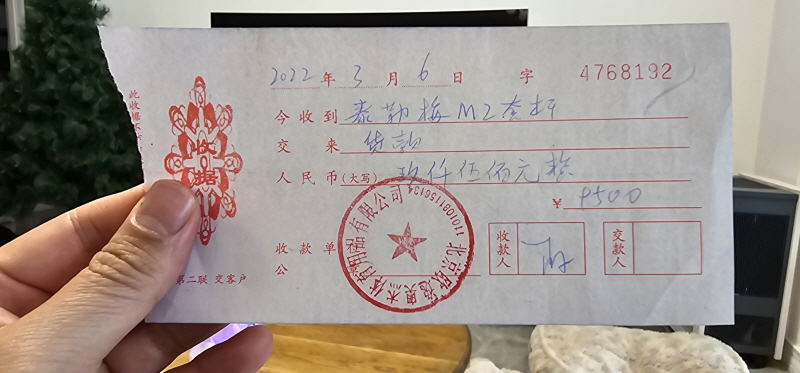 2022年3月6日 字 4768192
今收到 泰勒梅M2套杆
交来 货款
人民币(大写) 玖仟伍佰元整
¥ 9500
收款单
公
收款人
交款人
收据
第二联 交客户
此收据
1101081156134